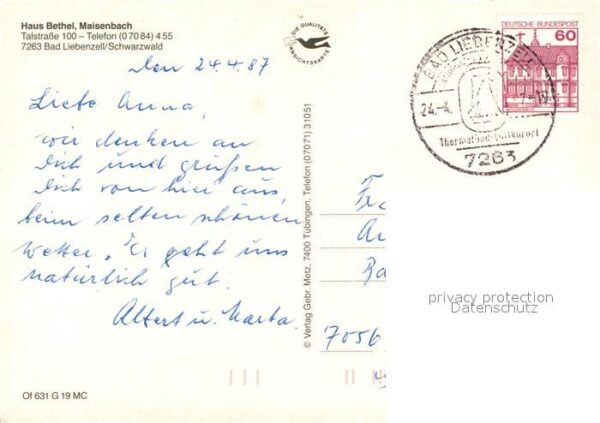 Haus Bethel, Maisenbach
Talstraße 100 – Telefon (0 70 84) 4 55
7263 Bad Liebenzell/Schwarzwald
DIE QUALITÄTS
ANSICHTSKARTE
den 24.4.87
Liebe Anna,
wir denken an
Dich und grüßen
Dich von hier aus,
beim selten schönen
Wetter. Es geht uns
natürlich gut.
Albert u. Marta.
© Verlag Gebr. Metz, 7400 Tübingen, Telefon (07071) 31051
Of 631 G 19 MC
DEUTSCHE BUNDESPOST
60
BAD LIEBENZELL
24.-4.
Thermalbad-Luftkurort
7263
7056
privacy protection
Datenschutz